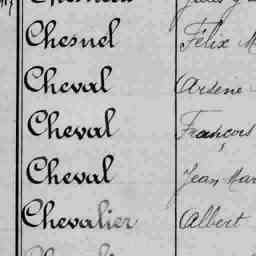 Chesnel Félix
Cheval Arsène
Cheval François
Cheval Jean Mar
Chevalier Albert